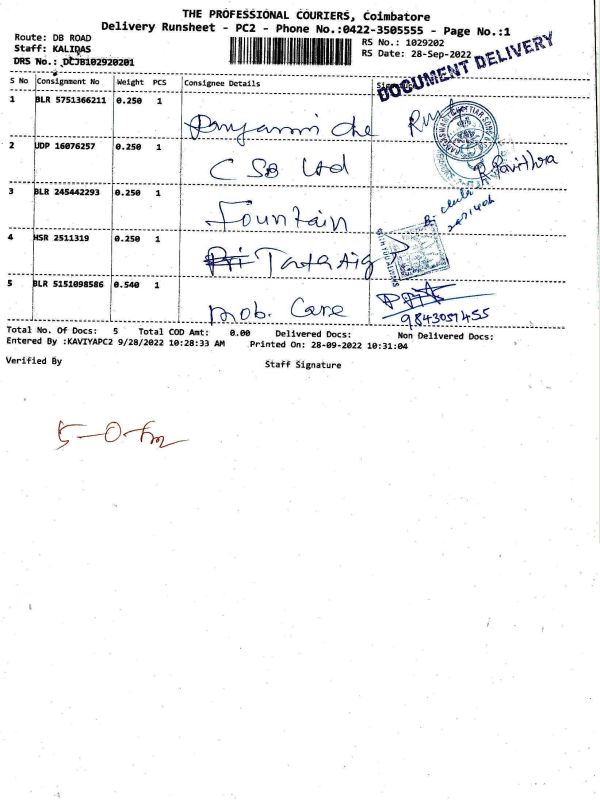 THE PROFESSIONAL COURIERS, Coimbatore
Delivery Runsheet - PC2 - Phone No.:0422-3505555 - Page No.:1
Route: DB ROAD
Staff: KALIDAS
DRS No.: DCJB102920201
RS No.: 1029202
RS Date: 28-Sep-2022
DOCUMENT DELIVERY
S No Consignment No Weight PCS Consignee Details
1 BLR 5751366211 0.250 1
2 UDP 16076257 0.250 1 CSB Ltd
R. Pavithra
3 BLR 245442293 0.250 1 Fountain
4 HSR 2511319 0.250 1 Tata Aig
5 BLR 5151098586 0.540 1 Mob. Care
9843051455
Total No. Of Docs: 5 Total COD Amt: 0.00 Delivered Docs: Non Delivered Docs:
Entered By :KAVIYAPC2 9/28/2022 10:28:33 AM Printed On: 28-09-2022 10:31:04
Verified By Staff Signature